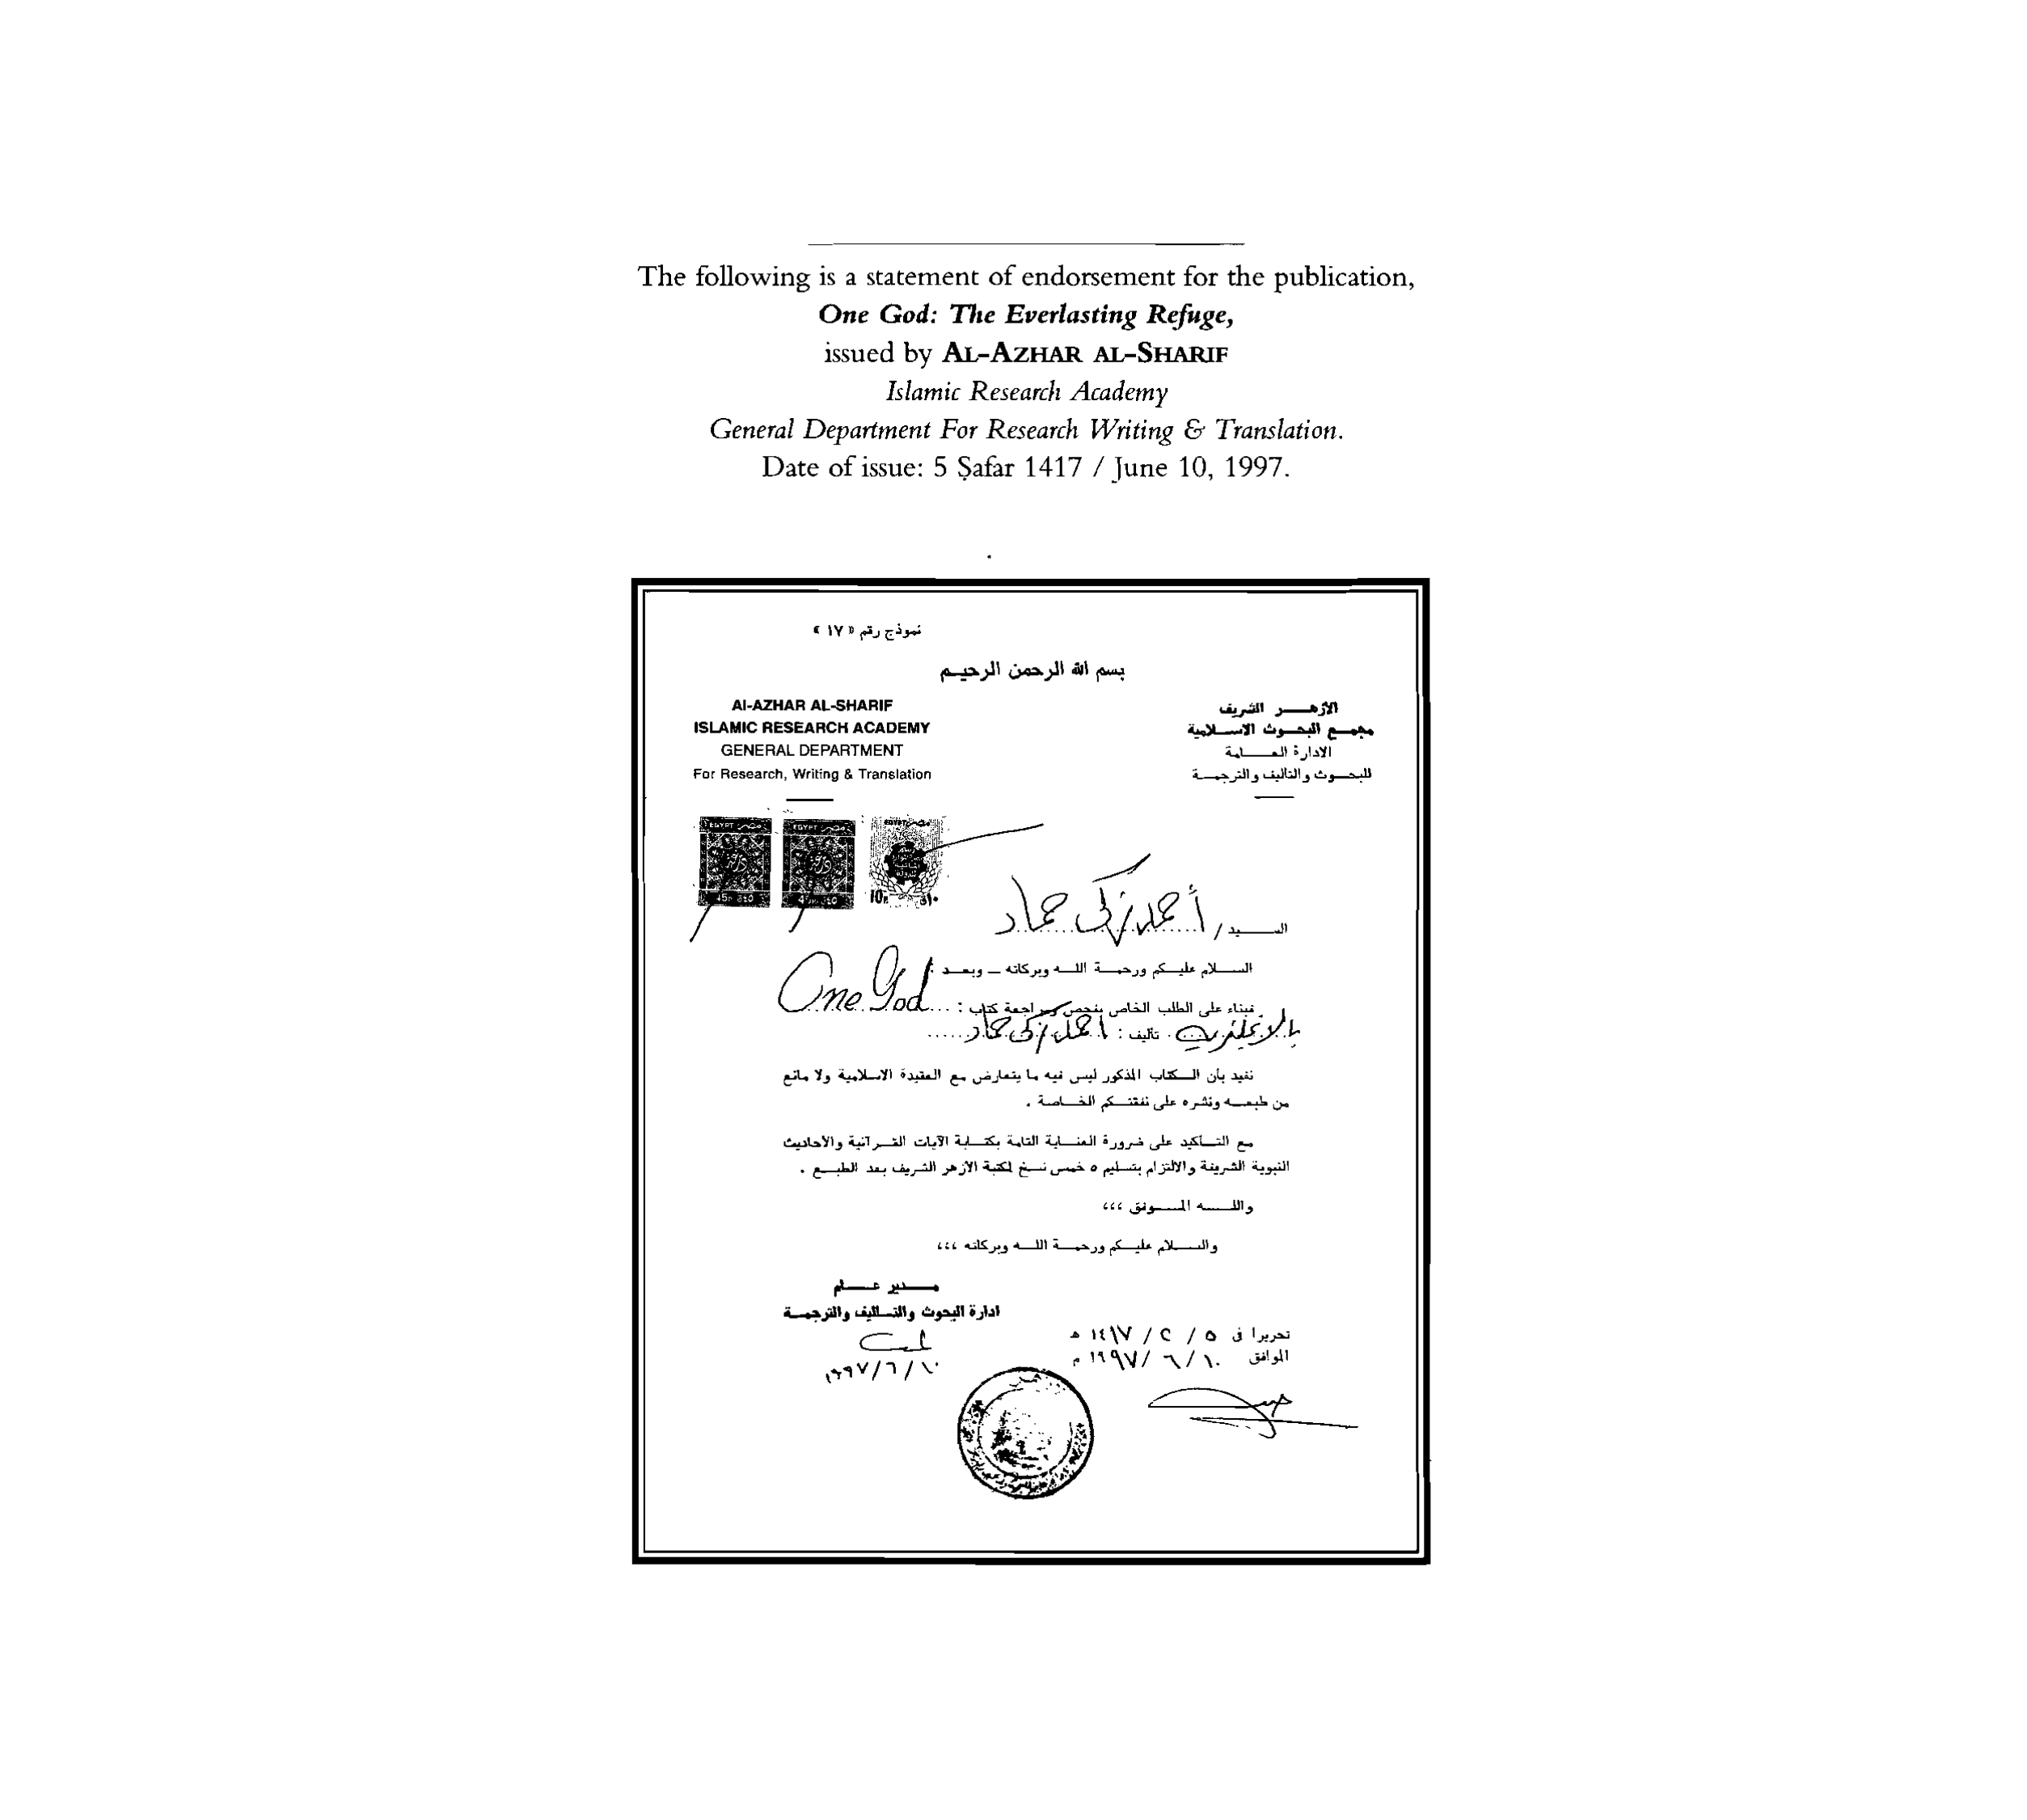 The following is a statement of endorsement for the publication,
One God: The Everlasting Refuge,
issued by AL-AZHAR AL-SHARIF
Islamic Research Academy
General Department For Research Writing & Translation.
Date of issue: 5 Ṣafar 1417 / June 10, 1997.
نموذج رقم « ١٧ »
بسم الله الرحمن الرحيم
Al-AZHAR AL-SHARIF
ISLAMIC RESEARCH ACADEMY
GENERAL DEPARTMENT
For Research, Writing & Translation
الأزهر الشريف
مجمع البحوث الاسلامية
الادارة العامة
للبحوث والتأليف والترجمة
EGYPT مصر
EGYPT مصر
EGYPT مصر
السيد / أحمد زكى حماد
السلام عليكم ورحمة الله وبركاته – وبعد :
فبناء على الطلب الخاص بفحص ومراجعة كتاب : One God
بالانجليزية تأليف : احمد زكى حماد
نفيد بأن الكتاب المذكور ليس فيه ما يتعارض مع العقيدة الاسلامية ولا مانع
من طبعه ونشره على نفقتكم الخاصة .
مع التأكيد على ضرورة العناية التامة بكتابة الآيات القرآنية والأحاديث
النبوية الشريفة والالتزام بتسليم ٥ خمس نسخ لمكتبة الأزهر الشريف بعد الطبع .
والله الموفق ،،،
والسلام عليكم ورحمة الله وبركاته ،،،
مدير عام
ادارة البحوث والتأليف والترجمة
١٩٩٧/٦/١٠
تحريرا فى ٥ / ٢ / ١٤١٧ هـ
الموافق ١٠ / ٦ / ١٩٩٧ م